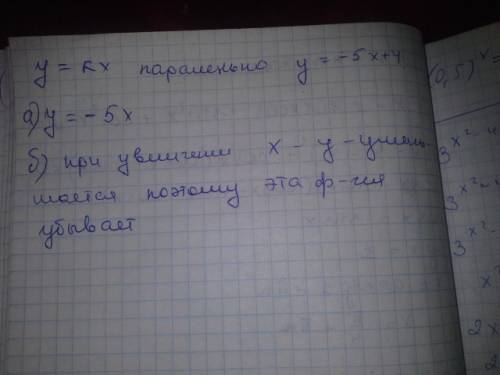 y = kx паралельно y = -5x+4
а) y = -5x
б) при увеличении x - y - умень-
шается поэтому эта ф-ция
убывает
(0,5)^x =
3^x²-4
3^x²-
3^x²-
x²
2x